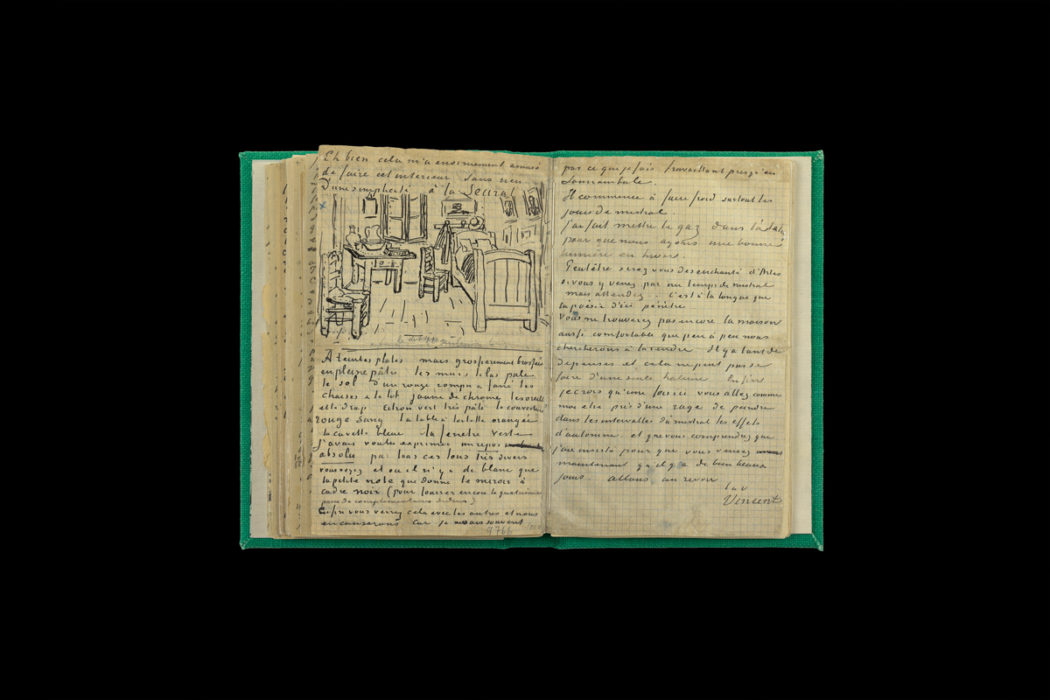 Eh bien cela m'a enormement amusé
de faire cet interieur Sans rien
D'une simplicité à la Seurat
À teintes plates mais grossierement brossées
en pleine pâte les murs lilas pale
le sol d'un rouge rompu & fané les
chaises & le lit jaune de chrome les oreillers
et le drap citron vert très pâle la couverture
rouge sang la table à toilette orangée
la cuvette bleue la fenetre verte
J'avais voulu exprimer un repos
absolu par tous ces tons très divers
vous voyez et ou il n'y a de blanc que
la petite note que donne le miroir à
cadre noir (pour fourrer encore la quatrieme
paire de complementaires dedans)
Enfin vous verrez cela avec les autres et nous
en causerons car je ne sais souvent
9766
pas ce que je fais travaillant presqu'en
somnambule.
Il commence à faire froid surtout les
jours de mistral.
j'ai fait mettre le gaz dans l'atelier
pour que nous ayons une bonne
lumiere en hiver.
Peutêtre serez vous desenchanté d'Arles
si vous y venez par un temps de mistral
mais attendez .. C'est à la longue que
la poésie d'ici pénètre
Vous ne trouverez pas encore la maison
aussi comfortable que peu à peu nous
chercherons à la rendre Il y a tant de
depenses et cela ne peut pas se
faire d'une seule haleine Enfin
je crois qu'une fois ici vous allez comme
moi etre pris d'une rage de peindre
dans les intervalles du mistral les effets
d'automne et que vous comprendrez que
j'aie insisté pour que vous veniez
maintenant qu'il y a de bien beaux
jours. Allons, au revoir
t.à v
Vincent